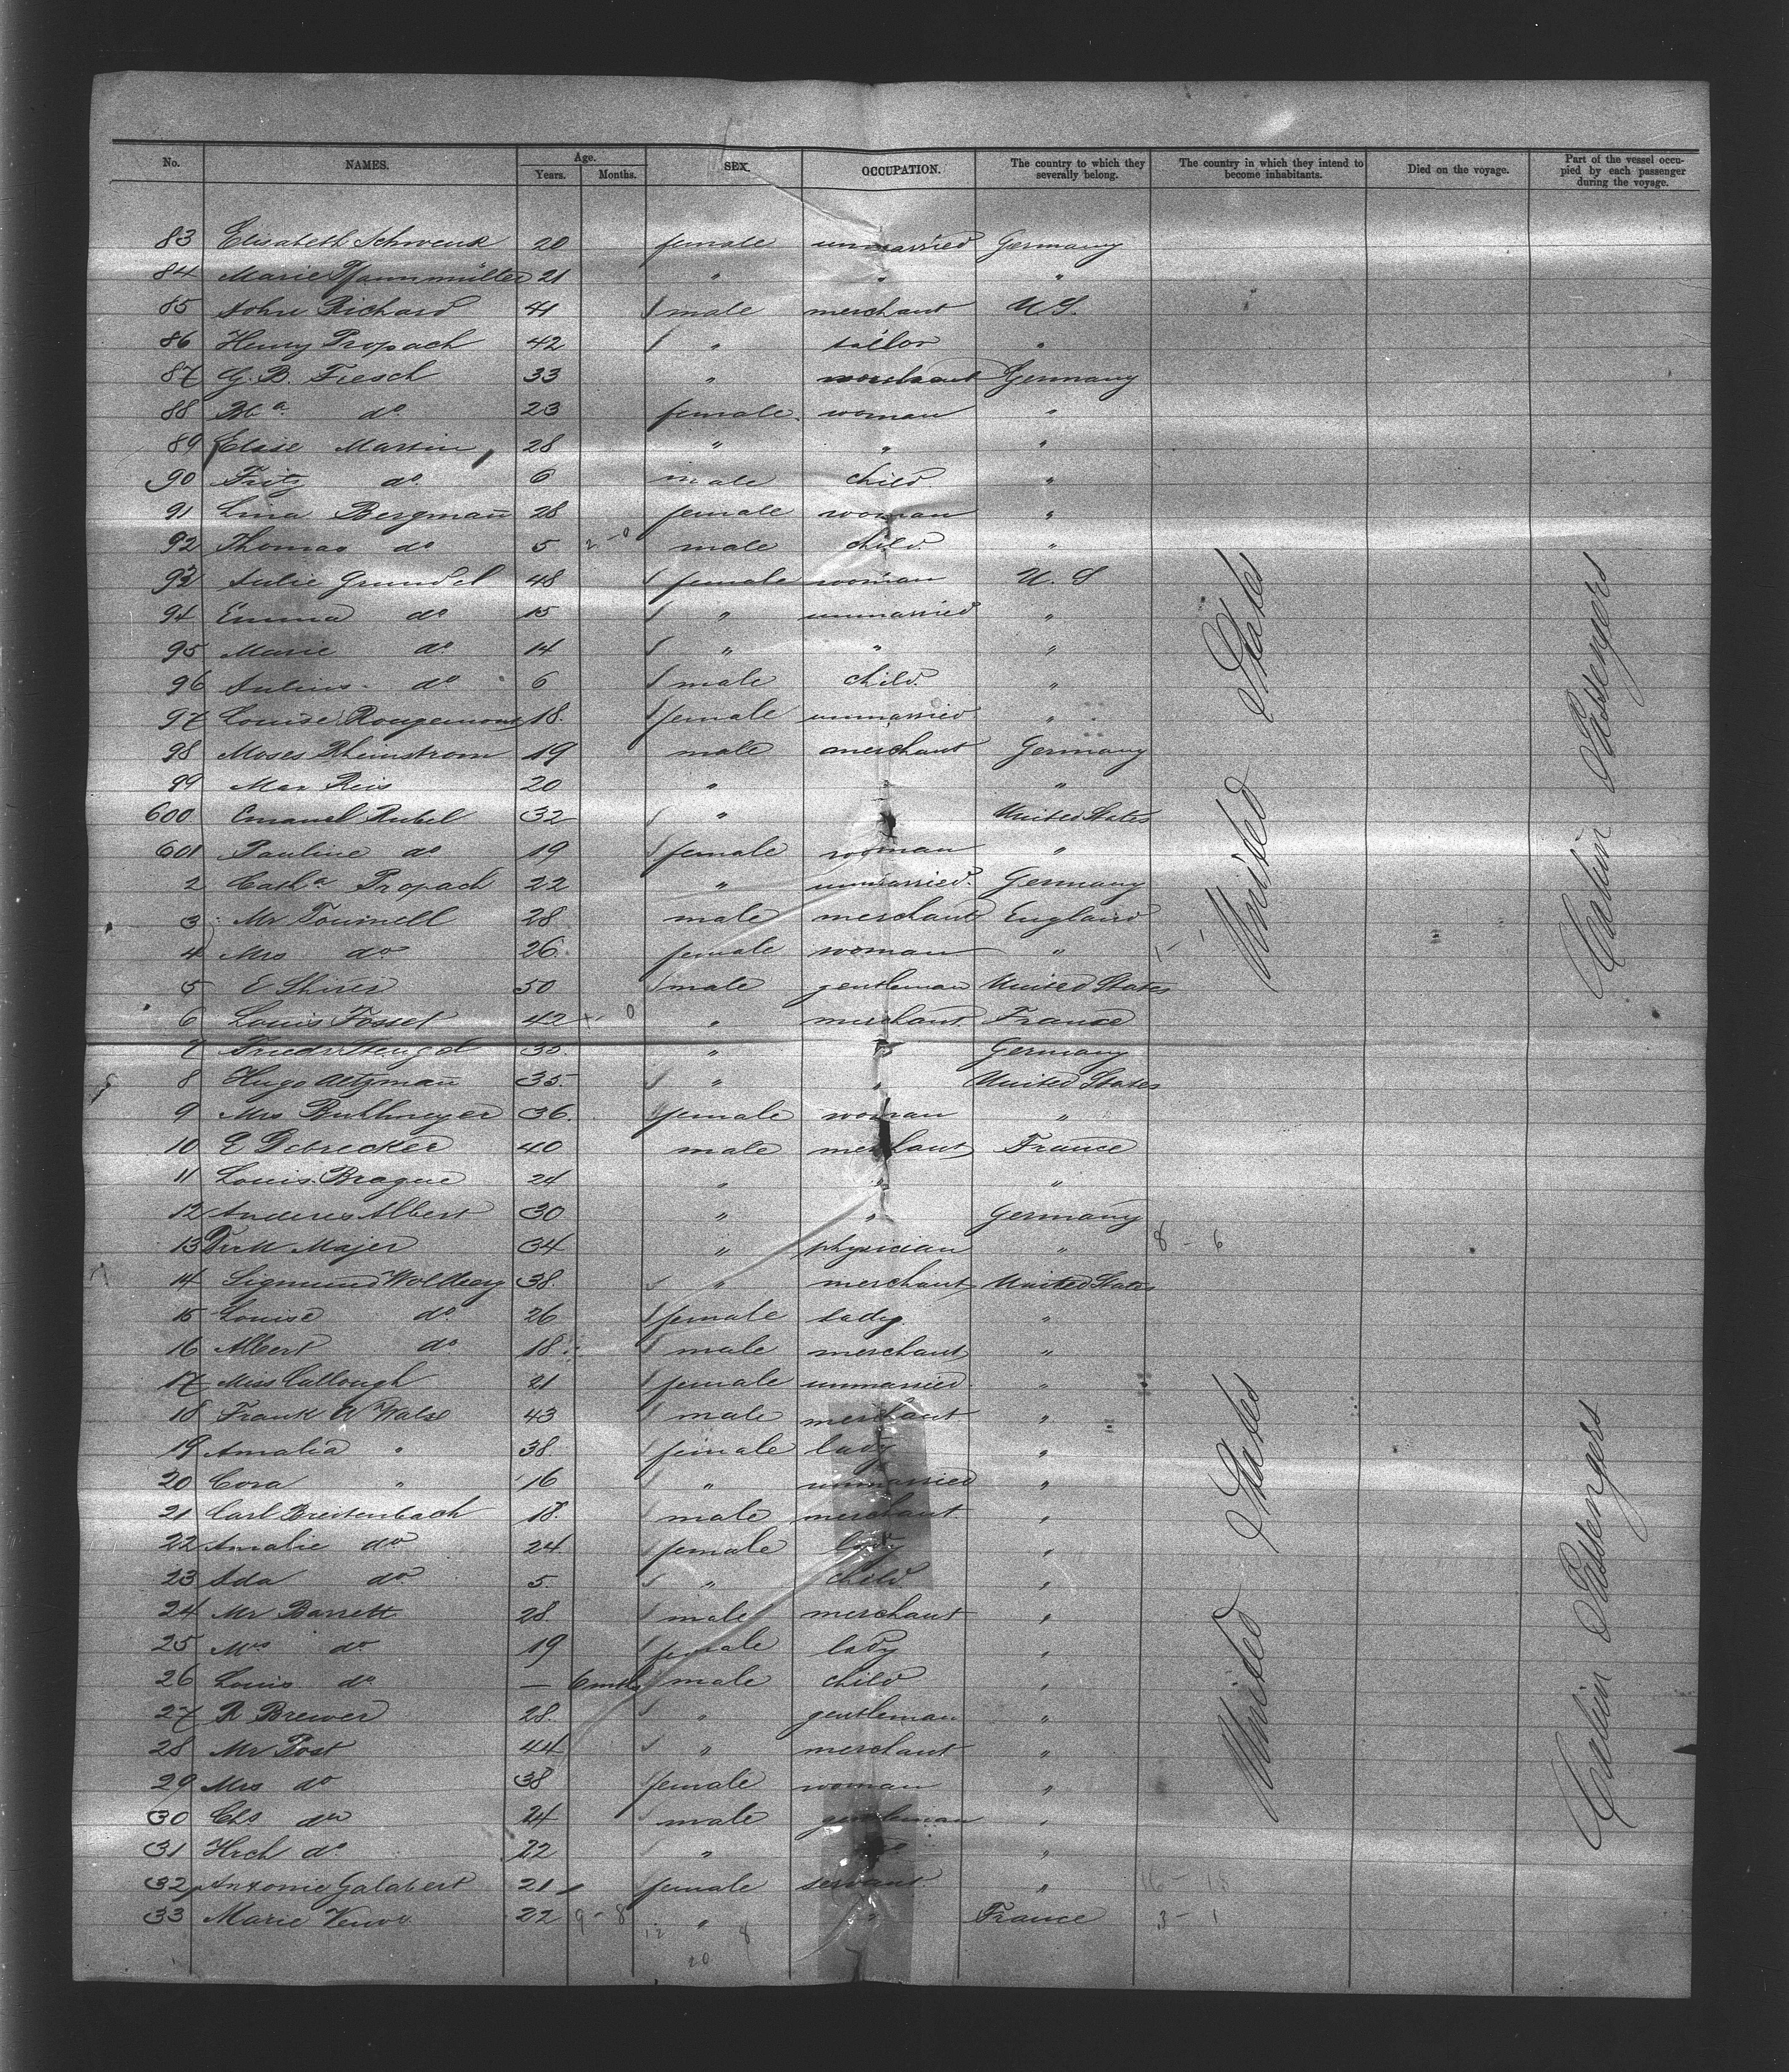 No. NAMES. Age. Years. Months. SEX. OCCUPATION. The country to which they severally belong. The country in which they intend to become inhabitants. Died on the voyage. Part of the vessel occupied by each passenger during the voyage.
83 Elisabeth Schwenk 20 female unmarried Germany
84 Marie Pfannmüller 21 " " "
85 John Richard 41 male merchant U S.
86 Henry Propach 42 " tailor "
87 G. B. Fiesch 33 " merchant Germany
88 do 23 female woman "
89 Elise Martin 28 " " "
90 Fritz do 6 male child "
91 Lina Bergman̄ 28 female woman "
92 Thomas do 5 2 - 0 male child "
93 Julie Grundel 48 female woman U. S
94 Emma do 15 " unmarried "
95 Marie do 14 " " "
96 Julius do 6 male child "
97 Louise Rougemont 18 female unmarried "
98 Moses Rheinstrom 19 male merchant Germany
99 Max Reis 20 " " "
600 Emanel Rubel 32 " " United States
601 Pauline do 19 female woman "
2 Cath a Propach 22 " unmarried Germany
3 Mr 28 male merchant England
4 Mrs do 26 female woman "
5 E Shires 50 male gentleman United States
6 Louis Fosset 42 " merchant France
7 Friedr Stengel 35 " " Germany
8 Hugo Aetzman̄ 35 " " United States
9 Mrs Buhlmeyer 36 female woman "
10 E Debrecker 40 male merchant France
11 Louis Brague 24 " " "
12 Anderes Albert 30 " " Germany
13 Majer 34 " physician " 8 - 6
14 Sigmund Wollberg 38 " merchant United States
15 Louise do 26 female lady "
16 Albert do 18 male merchant "
17 Miss Cullough 21 female unmarried "
18 Frank W 43 male merchant "
19 Amalia " 38 female lady "
20 Cora " 16 " unmarried "
21 Carl Breitenbach 18 male merchant "
22 Amalie do 24 female lady "
23 Ada do 5 " child "
24 Mr Barrett 28 male merchant "
25 Mrs do 19 female lady "
26 Louis do — 6 mth male child "
27 R Brewer 28 " gentleman "
28 Mr Post 44 " merchant "
29 Mrs do 38 female woman "
30 Chs do 24 male gentleman "
31 Hrch do 22 " do "
32 Antonie Galabert 21 female servant " 16 - 15
33 Marie Veuve 22 9 - 8 " " France 3 - 1
12 8
20
United States
Cabin Passengers
United States
Cabin Passengers